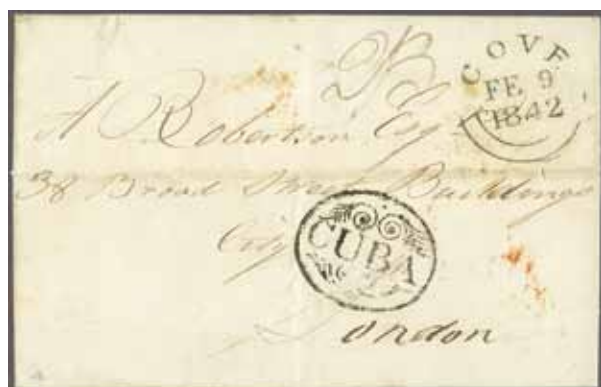 COVE
FE 9
1842
A Robertson Esq
38 Broad Street Buildings
City
CUBA
London